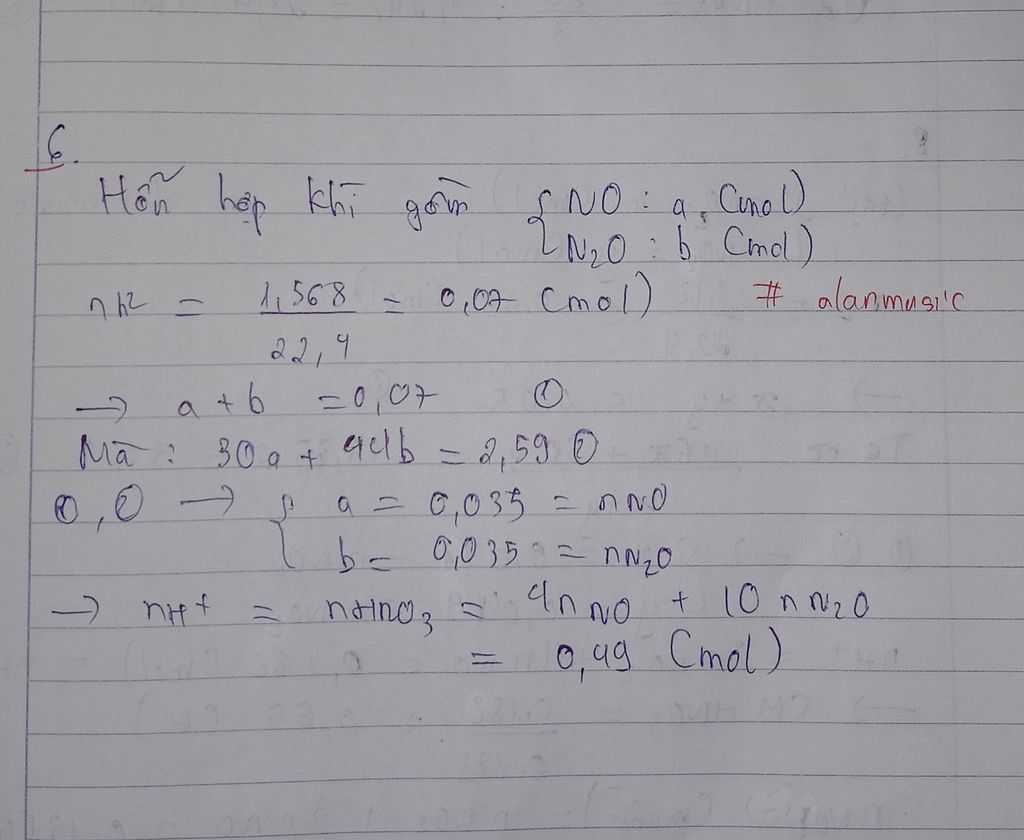 6.
Hỗn hợp khí gồm { NO : a (mol)
N2O : b (mol)
nh2 = 1,568 / 22,4 = 0,07 (mol) # alanmusic
→ a + b = 0,07 ①
Mà : 30a + 44b = 2,59 ②
①, ② → { a = 0,035 = nNO
b = 0,035 = nN2O
→ nH+ = nHNO3 = 4nNO + 10nN2O
= 0,49 (mol)